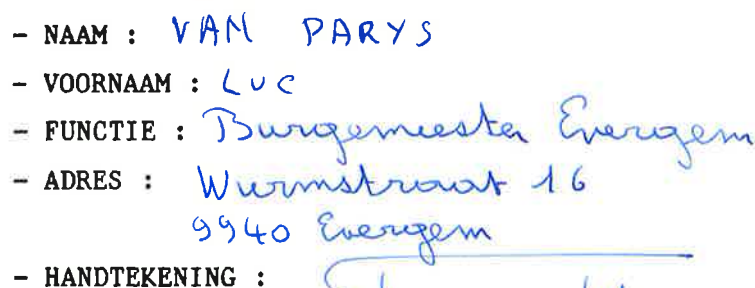 - NAAM : VAN PARYS
- VOORNAAM : LUC
- FUNCTIE : Burgemeester Evergem
- ADRES : Wurmstraat 16
9940 Evergem
- HANDTEKENING :